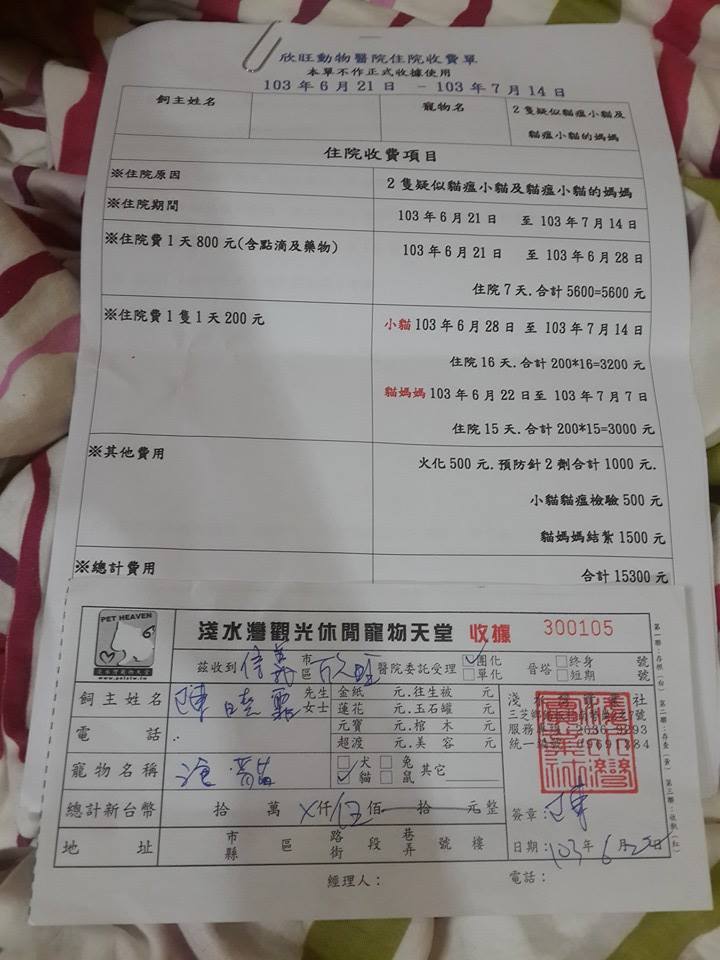 欣旺動物醫院住院收費單
本單不作正式收據使用
103 年 6 月 21 日 - 103 年 7 月 14 日
飼主姓名 寵物名 2 隻疑似貓瘟小貓及
貓瘟小貓的媽媽
住院收費項目
※住院原因 2 隻疑似貓瘟小貓及貓瘟小貓的媽媽
※住院期間 103 年 6 月 21 日 至 103 年 7 月 14 日
※住院費 1 天 800 元(含點滴及藥物) 103 年 6 月 21 日 至 103 年 6 月 28 日
住院 7 天.合計 5600=5600 元
※住院費 1 隻 1 天 200 元 小貓 103 年 6 月 28 日 至 103 年 7 月 14 日
住院 16 天.合計 200*16=3200 元
貓媽媽 103 年 6 月 22 日至 103 年 7 月 7 日
住院 15 天.合計 200*15=3000 元
※其他費用 火化 500 元.預防針 2 劑合計 1000 元.
小貓貓瘟檢驗 500 元
貓媽媽結紮 1500 元
※總計費用 合計 15300 元
PET HEAVEN
淺水灣觀光休閒寵物天堂 收據 300105
茲收到 信義 市區 欣旺 醫院委託受理 團化 單化 晉塔 終身 短期 號 號
飼主姓名 陳 先生 女士 金紙 元.往生被 元
蓮花 元.玉石罐 元
電話 元寶 元.棺木 元
超渡 元.美容 元
服務專線
寵物名稱 犬 兔 貓 鼠 其它
總計新台幣 拾 萬 仟 伍 佰 拾 元整 簽章: 陳
地址 市縣 區 路街 段 巷弄 號 樓 日期: 103 年 6 月 日
經理人: 電話: